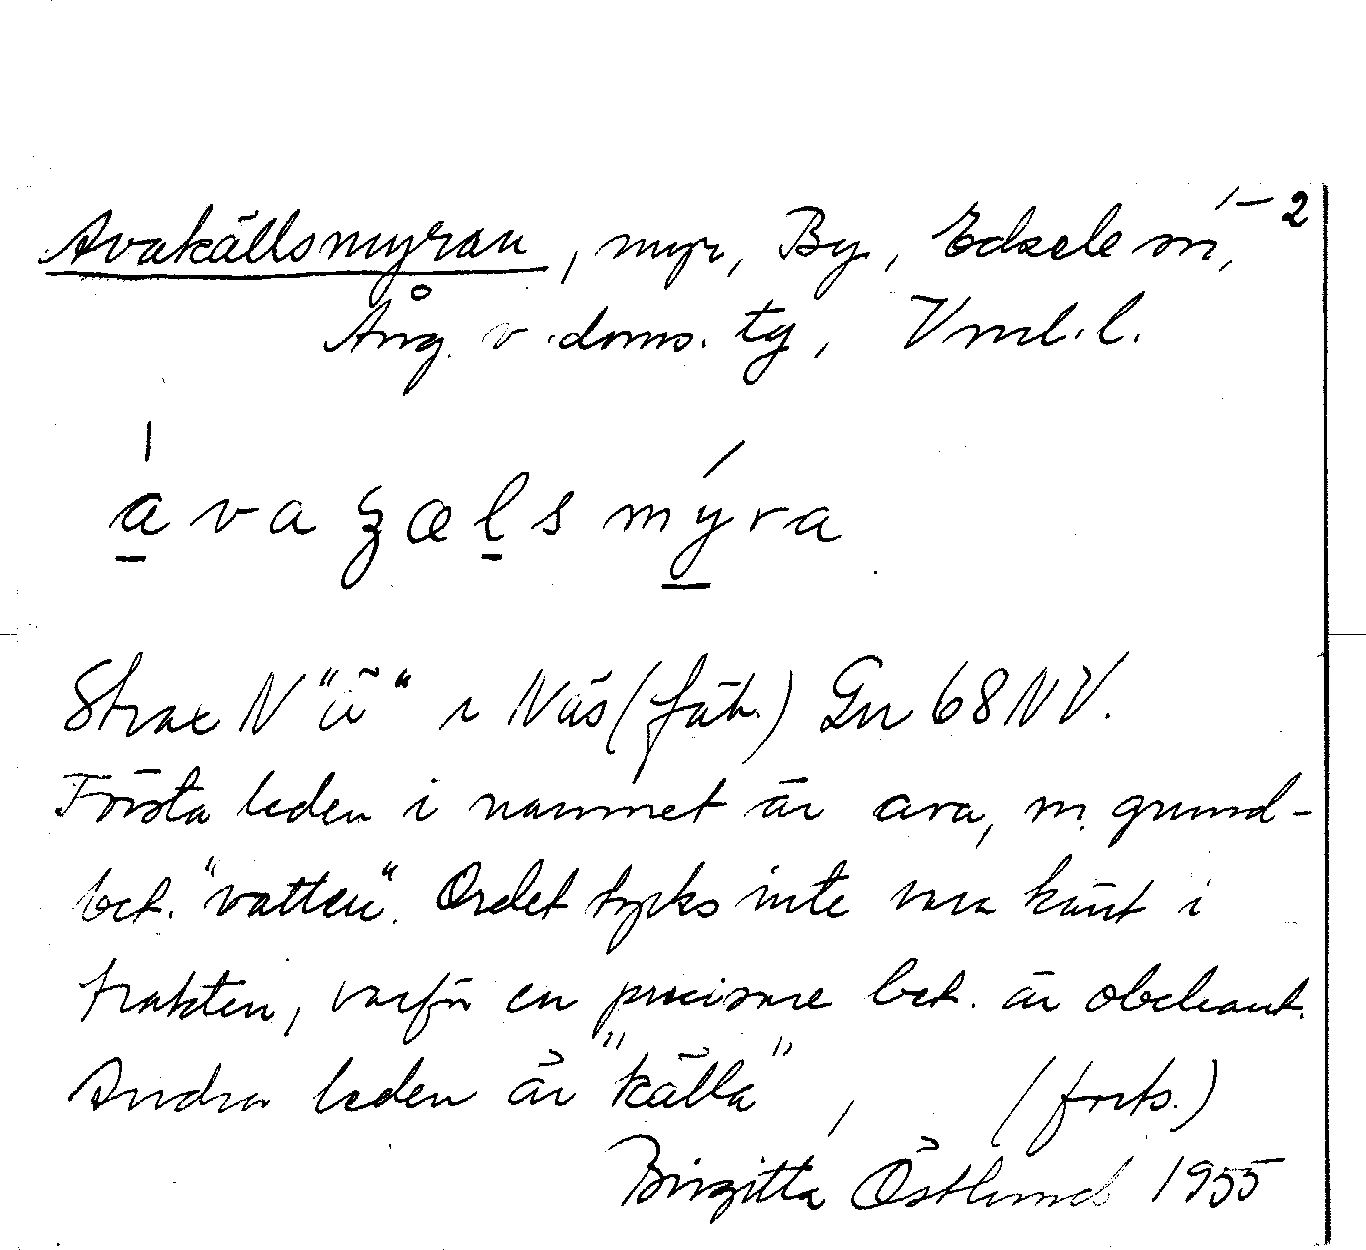 1–2
Avakällsmyran, myr, By, Edsele sn,
Ång. v. doms. tg, Vnl. l.
ava ʒæls mýra
Strax N "ä" i Näs (fäb.) Gn 68 NV.
Första leden i namnet är ava, m. grund-
bet. "vatten". Ordet tycks inte vara känt i
trakten, varför en precisare bet. är obekant.
Andra leden är "källa", (forts.)
Birgitta Östlund 1955